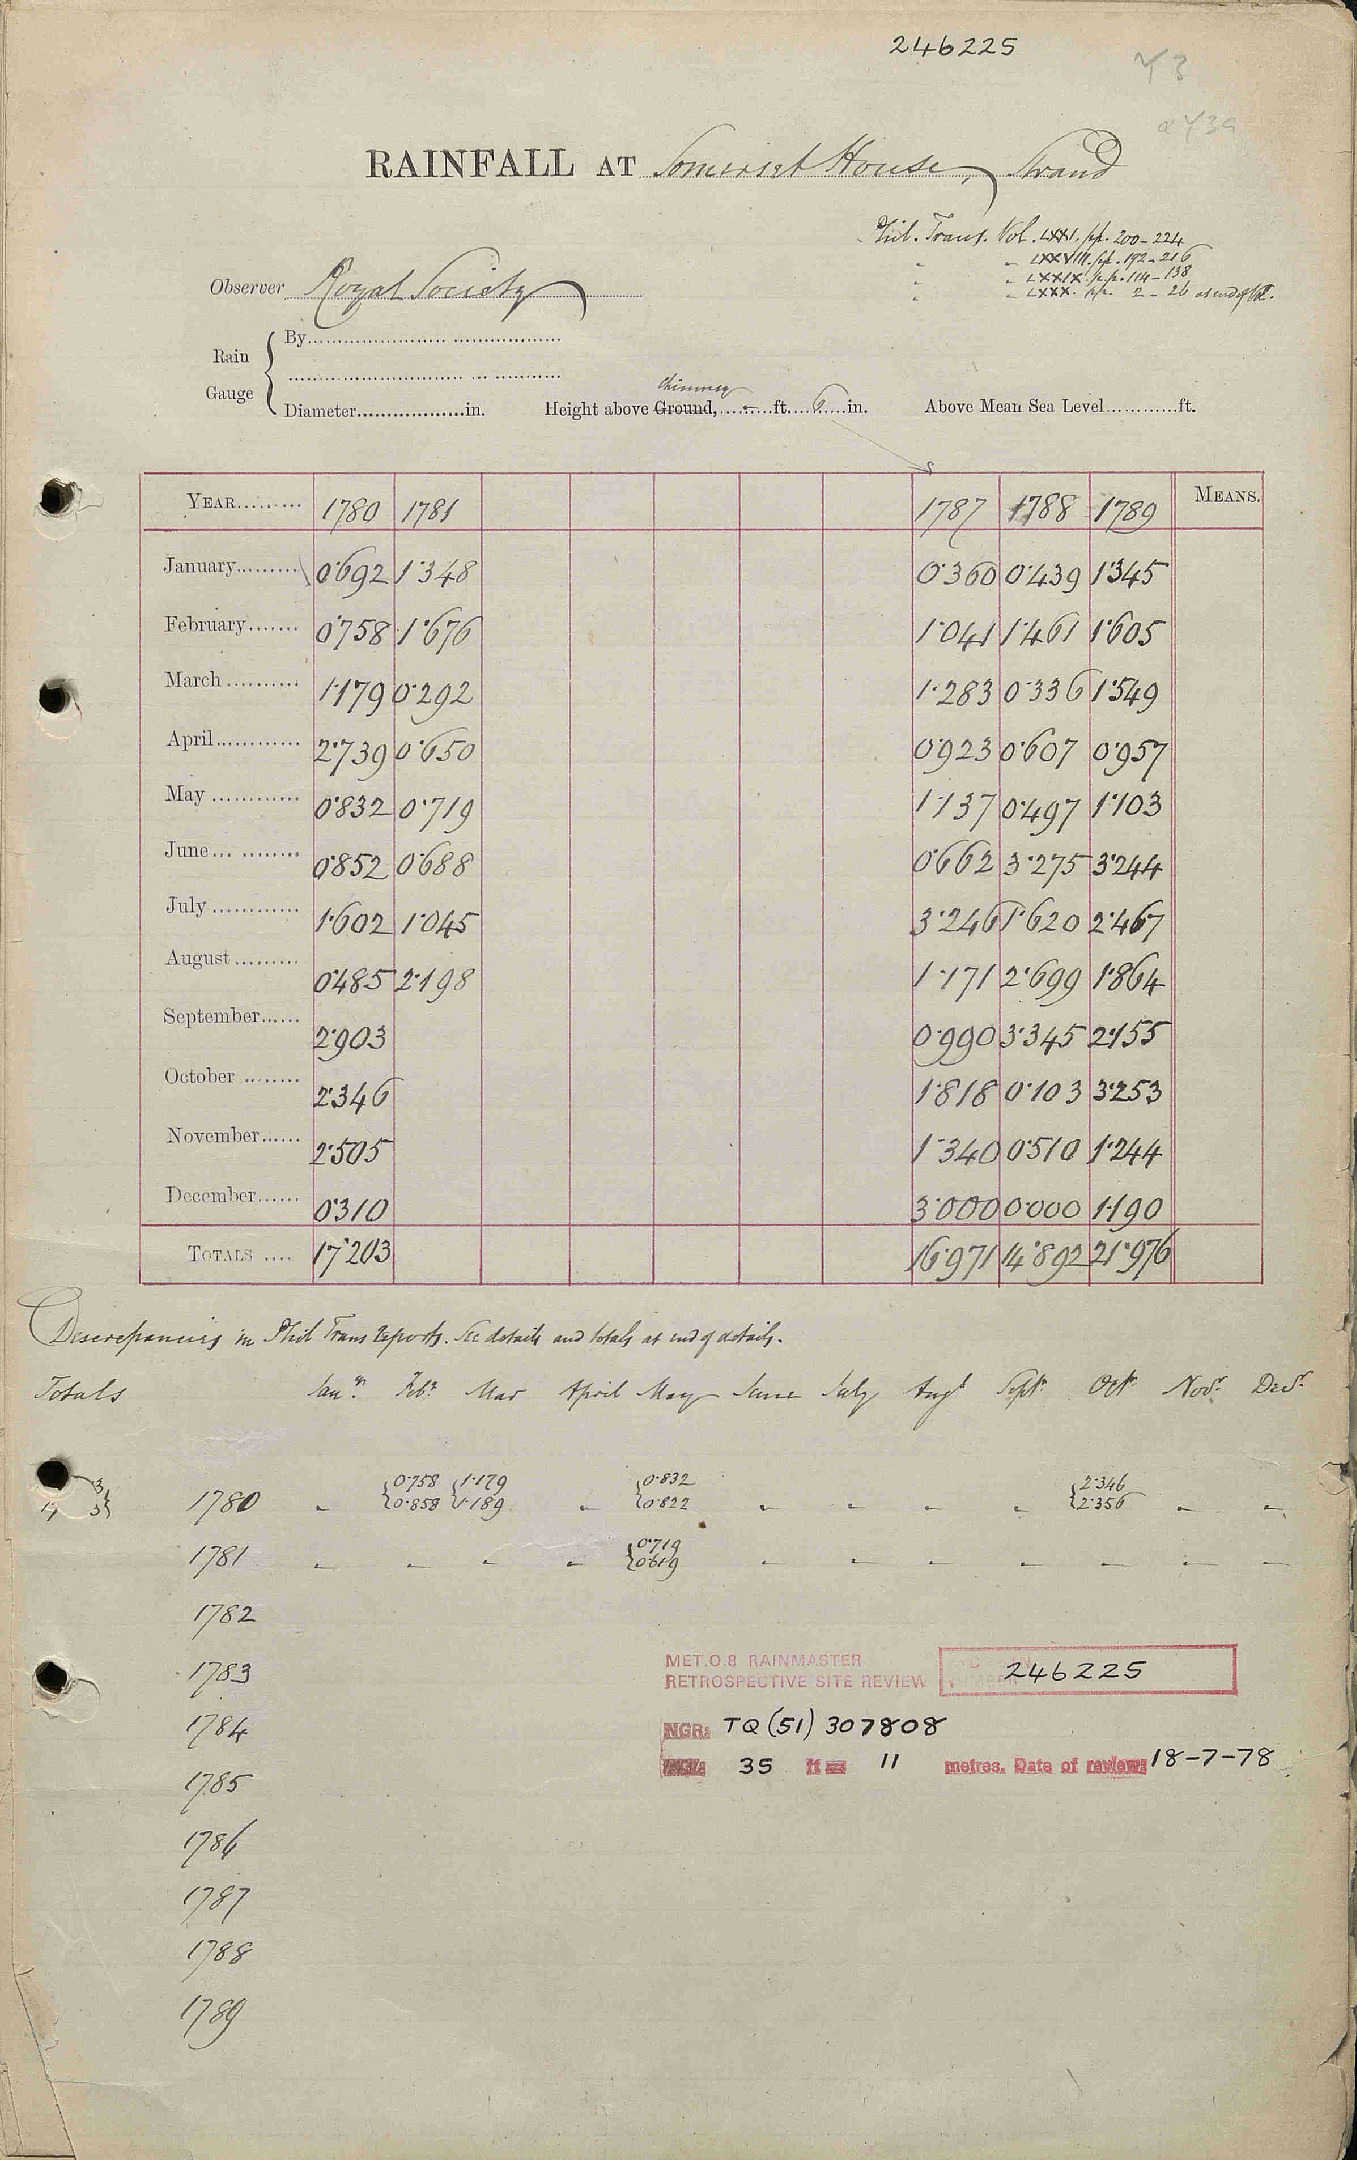 246225
RAINFALL AT Somerset House, Strand
Phil. Trans. Vol. LXXI. pp. 200-224
" " LXXVIII. pp. 192-216
Observer Royal Society
" " LXXIX pp. 114-138
" " LXXX. pp. 2-26 at end of Vol.
Rain Gauge { By
Diameter in. Height above Ground, chimney - ft. 6 in. Above Mean Sea Level ft.
YEAR 1780 1781 1787 1788 1789 MEANS.
January 0.692 1.348 0.360 0.439 1.345
February 0.758 1.676 1.041 1.461 1.605
March 1.179 0.292 1.283 0.336 1.549
April 2.739 0.650 0.923 0.607 0.957
May 0.832 0.719 1.137 0.497 1.103
June 0.852 0.688 0.662 3.275 3.244
July 1.602 1.045 3.246 1.620 2.467
August 0.485 2.198 1.171 2.699 1.864
September 2.903 0.990 3.345 2.155
October 2.346 1.818 0.103 3.253
November 2.505 1.340 0.510 1.244
December 0.310 3.000 0.000 1.190
TOTALS 17.203 16.971 14.892 21.976
Discrepancies in Phil Trans reports. See details and totals at end of details.
Totals Jany. Feby. Mar April May June July Augt Sept. Oct. Novr. Decr.
1780 - {0.758 0.858 {1.179 1.189 - {0.832 0.822 - - - - {2.346 2.356 - -
1781 - - - - {0.719 0.619 - - - - - - -
1782
1783
1784
1785
1786
1787
1788
1789
MET.O.8 RAINMASTER
RETROSPECTIVE SITE REVIEW 246225
NGR: TQ (51) 307808
35 ft = 11 metres. Date of review: 18-7-78